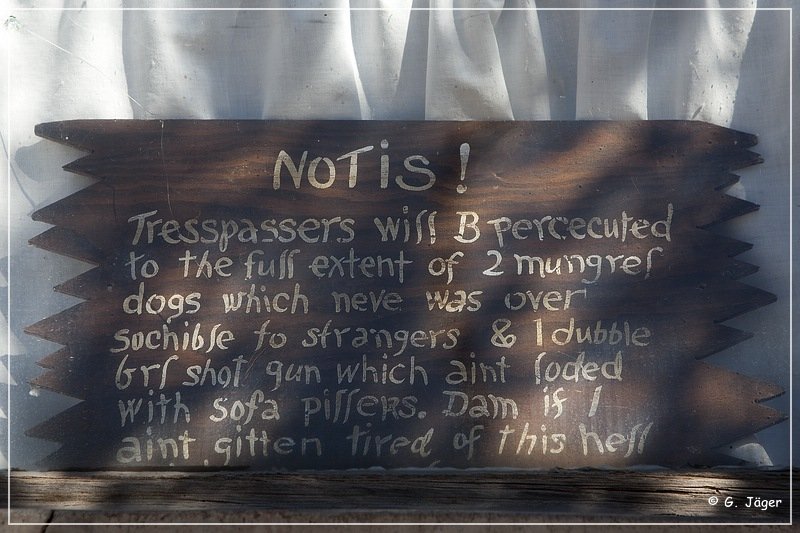 NOTIS!
Tresspassers will B percecuted
to the full extent of 2 mungrel
dogs which neve was over
sochible to strangers & 1 dubble
brl shot gun which aint loded
with sofa pillers. Dam if I
aint gitten tired of this hell
© G. Jäger